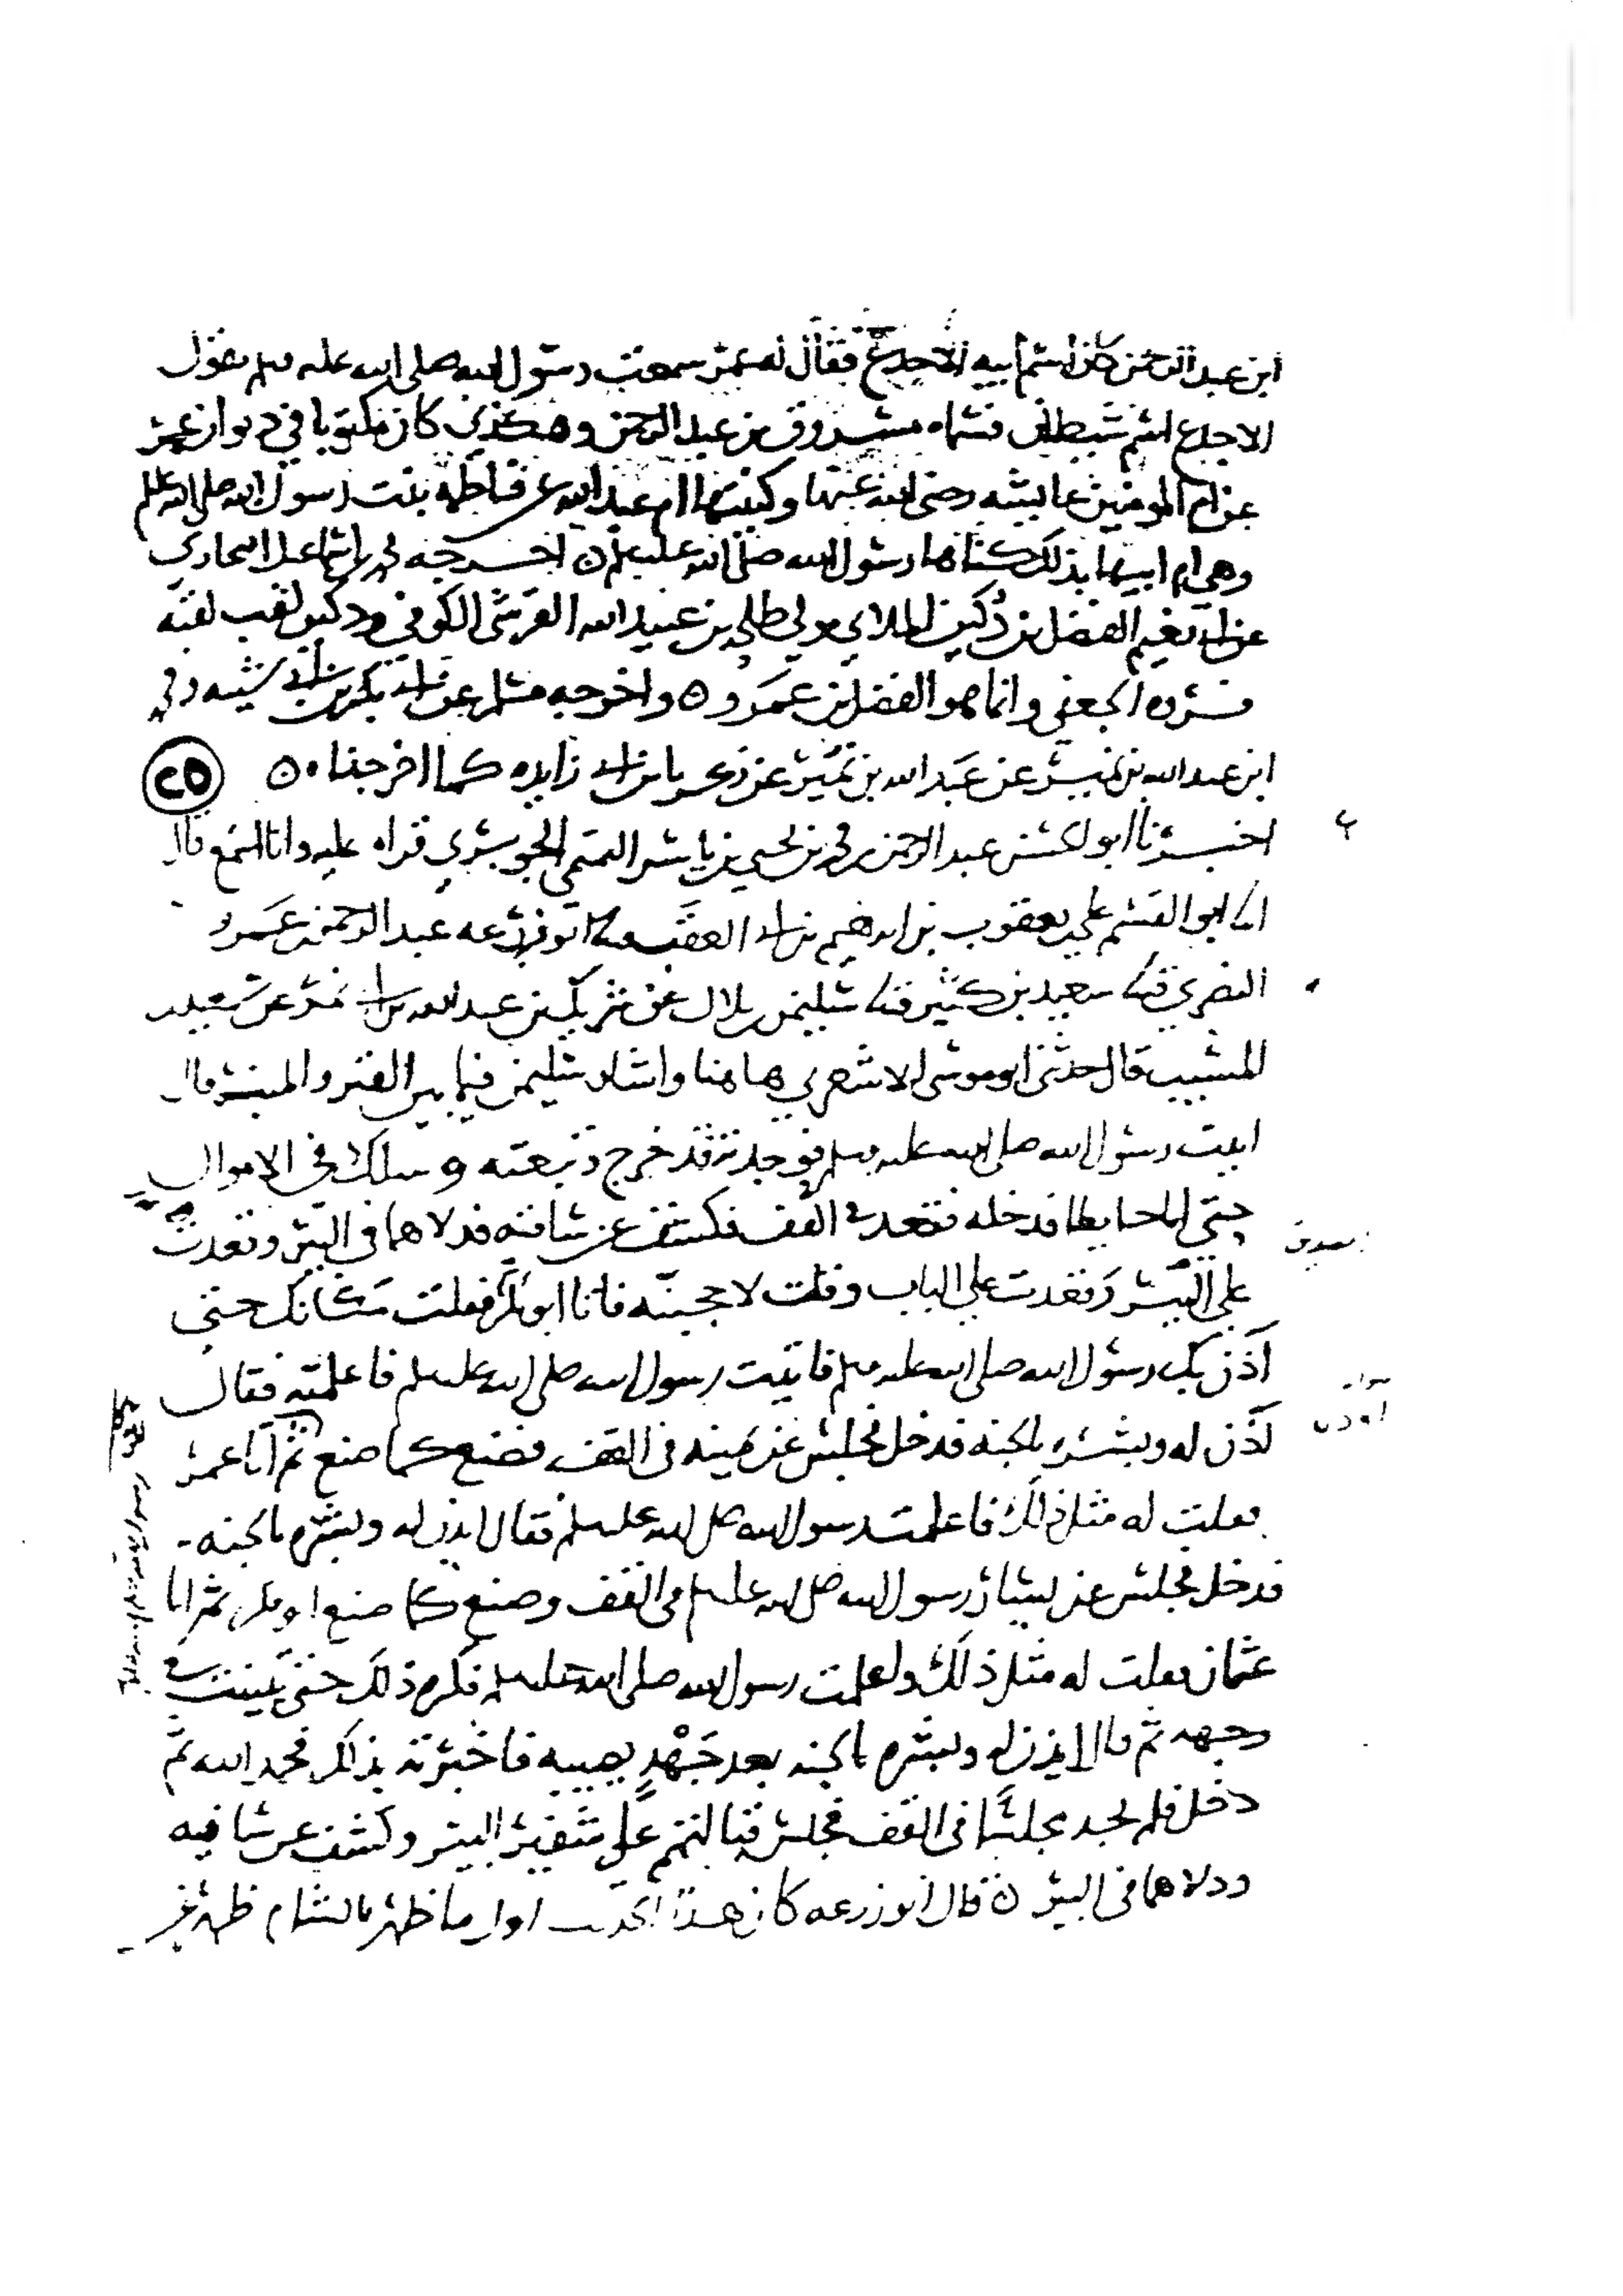 ابن عبد الرحمن كان اسم ابيه الاجدع فقال له عمر سمعت رسول الله صلى الله عليه وسلم يقول
الاجدع اسم شيطان فسماه مسروق بن عبد الرحمن وهكذى كان مكتوبا في ديوان عمر
عن ام المومنين عايشه رضى الله عنها وكنيتها ام عبد الله عن فاطمه بنت رسول الله صلى الله عليه وسلم
وهي ام ابيها بذلك كناها رسول الله صلى الله عليه وسلم ه اخرجه محمد بن اسماعيل البخاري
عن ابي نعيم الفضل بن دكين الملاي مولي طلحه بن عبيد الله القرشى الكوفي ودكين لقب لقبه
الجعفي وانما هو الفضل بن عمرو ه واخرجه مسلم عن ابي بكر بن ابي شيبه ومحمد
ابن عبد الله بن نمير عن عبد الله بن نمير عن زكريا بن ابي زايده كما اخرجناه ه
٢٥
اخبرنا ابو عبد الرحمن بن محمد بن يحيى بن ياسر التميمي الجوبري قراه عليه وانا اسمع قال
انا ابو القسم علي بن يعقوب بن ابرهيم بن ابي العقب ثنا ابو زرعه عبد الرحمن بن عمرو
النصري ثنا سعيد بن كثير ثنا سليمن بن بلال عن شريك بن عبد الله بن ابي نمر عن سعيد بن
المسيب قال حدثنى ابو موسى الاشعري هاهنا واشار سليمن فيما بين القبر والمنبر قال
اتيت رسول الله صلى الله عليه وسلم فوجدته قد خرج فتبعته وسلك في الاموال
حتى اتا حايطا فدخله فقعد في القف فكشف عن ساقيه فدلاهما في البير وقعدت
على البير وقعدت علي الباب وقلت لاحجبنه فاتا ابو بكر فقلت مكانك حتى
آذن بك رسول الله صلى الله عليه وسلم فاتيت رسول الله صلى الله عليه وسلم فاعلمته فقال
ائذن له وبشره بالجنه فدخل فجلس عن يمينه في القف فصنع كما صنع ثم اتا عمر
فقلت له مثل ذلك فاعلمت رسول الله صلى الله عليه وسلم فقال ايذن له وبشره بالجنه
فدخل فجلس عن يسار رسول الله صلى الله عليه وسلم في القف وصنع كما صنع ابو بكر ثم اتا
عثمان فقلت له مثل ذلك واعلمت رسول الله صلى الله عليه وسلم فكره ذلك حتى تبينت في
وجهه ثم قال ايذن له وبشره بالجنه بعد جهد يصيبه فاخبرته بذلك فحمد الله ثم
دخل فلم يجد مجلسا في القف فجلس قبالتهم على شفير البير وكشف عن ساقيه
ودلاهما في البير ه قال ابو زرعه كان هذا الحديث اول ما ظهر بالشام ظهر عن